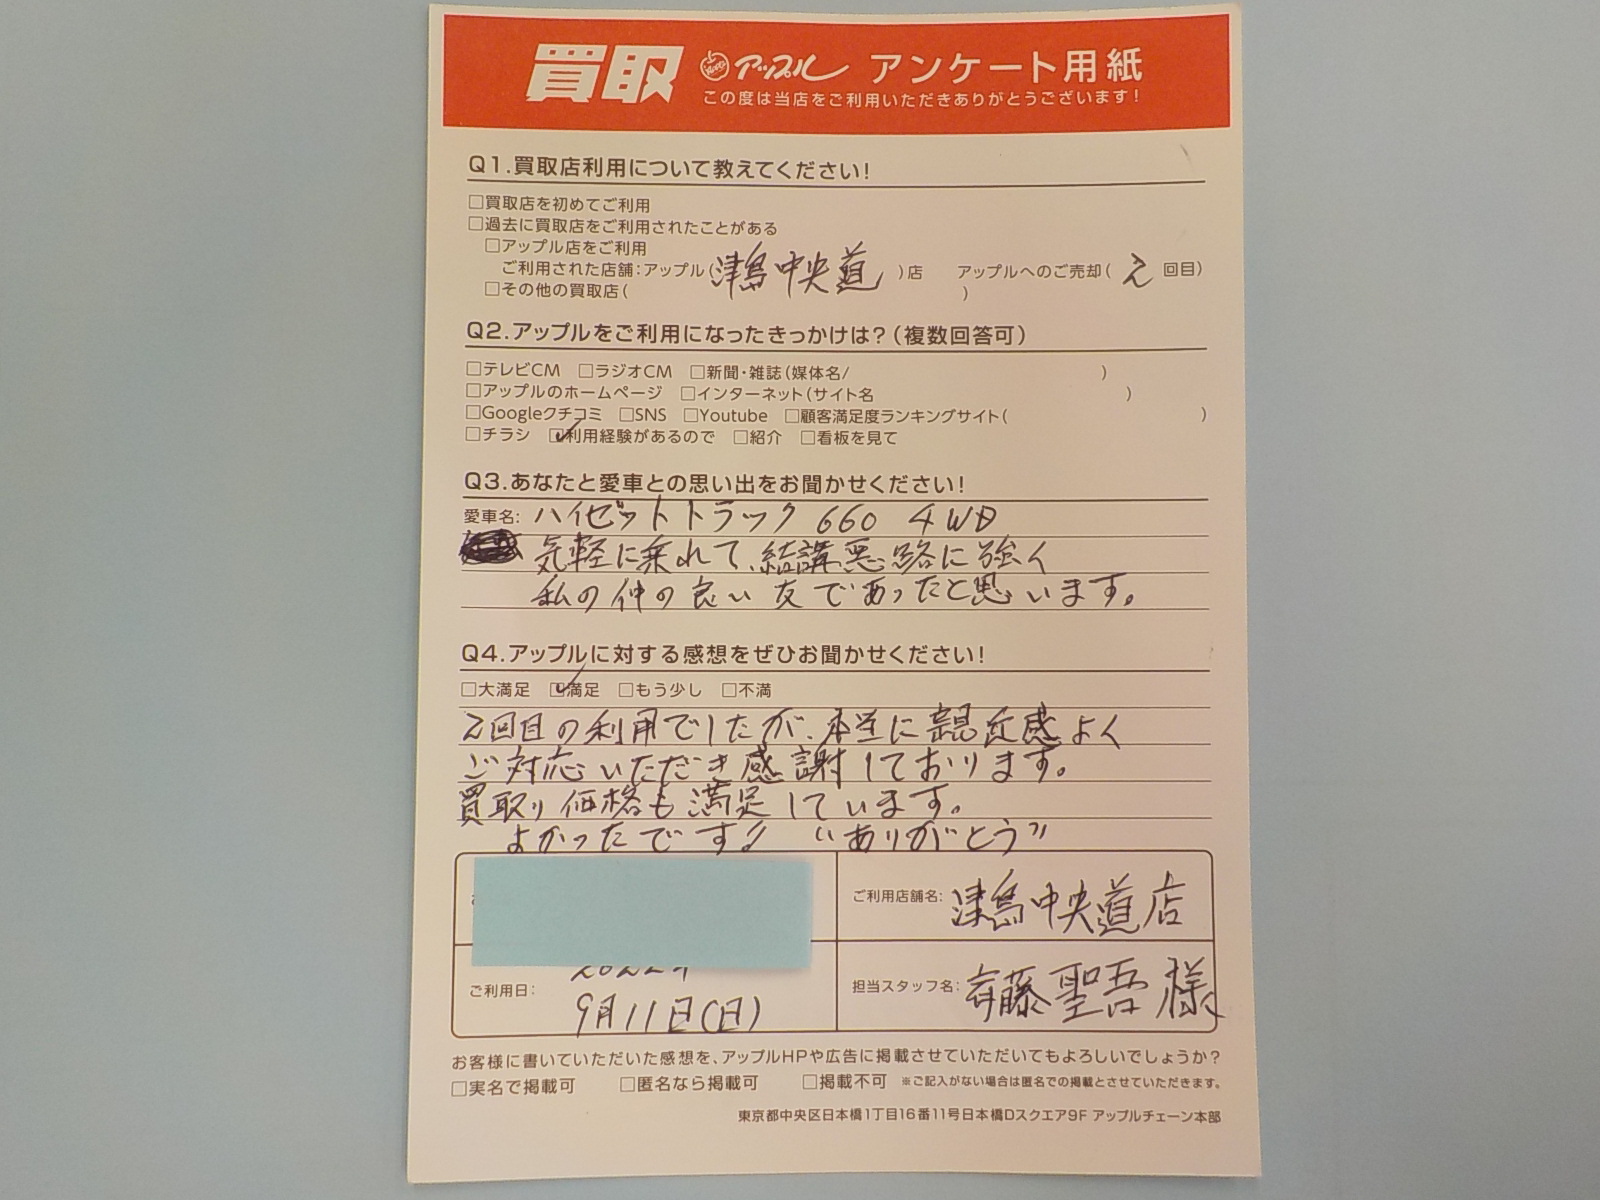 買取 アップル アンケート用紙
この度は当店をご利用いただきありがとうございます!
Q1.買取店利用について教えてください!
□買取店を初めてご利用
□過去に買取店をご利用されたことがある
□アップル店をご利用
ご利用された店舗:アップル(津島中央道)店 アップルへのご売却(2回目)
□その他の買取店( )
Q2.アップルをご利用になったきっかけは?(複数回答可)
□テレビCM □ラジオCM □新聞・雑誌(媒体名/ )
□アップルのホームページ □インターネット(サイト名 )
□Googleクチコミ □SNS □Youtube □顧客満足度ランキングサイト( )
□チラシ ☑利用経験があるので □紹介 □看板を見て
Q3.あなたと愛車との思い出をお聞かせください!
愛車名: ハイゼットトラック 660 4WD
気軽に乗れて、結構悪路に強く
私の仲の良い友であったと思います。
Q4.アップルに対する感想をぜひお聞かせください!
□大満足 ☑満足 □もう少し □不満
2回目の利用でしたが、本当に親近感よく
ご対応いただき感謝しております。
買取り価格も満足しています。
よかったです!! “ありがとう”
ご利用店舗名: 津島中央道店
ご利用日: 9月11日(日)
担当スタッフ名: 斉藤聖吾様
お客様に書いていただいた感想を、アップルHPや広告に掲載させていただいてもよろしいでしょうか?
□実名で掲載可 □匿名なら掲載可 □掲載不可 ※ご記入がない場合は匿名での掲載とさせていただきます。
東京都中央区日本橋1丁目16番11号日本橋Dスクエア9F アップルチェーン本部